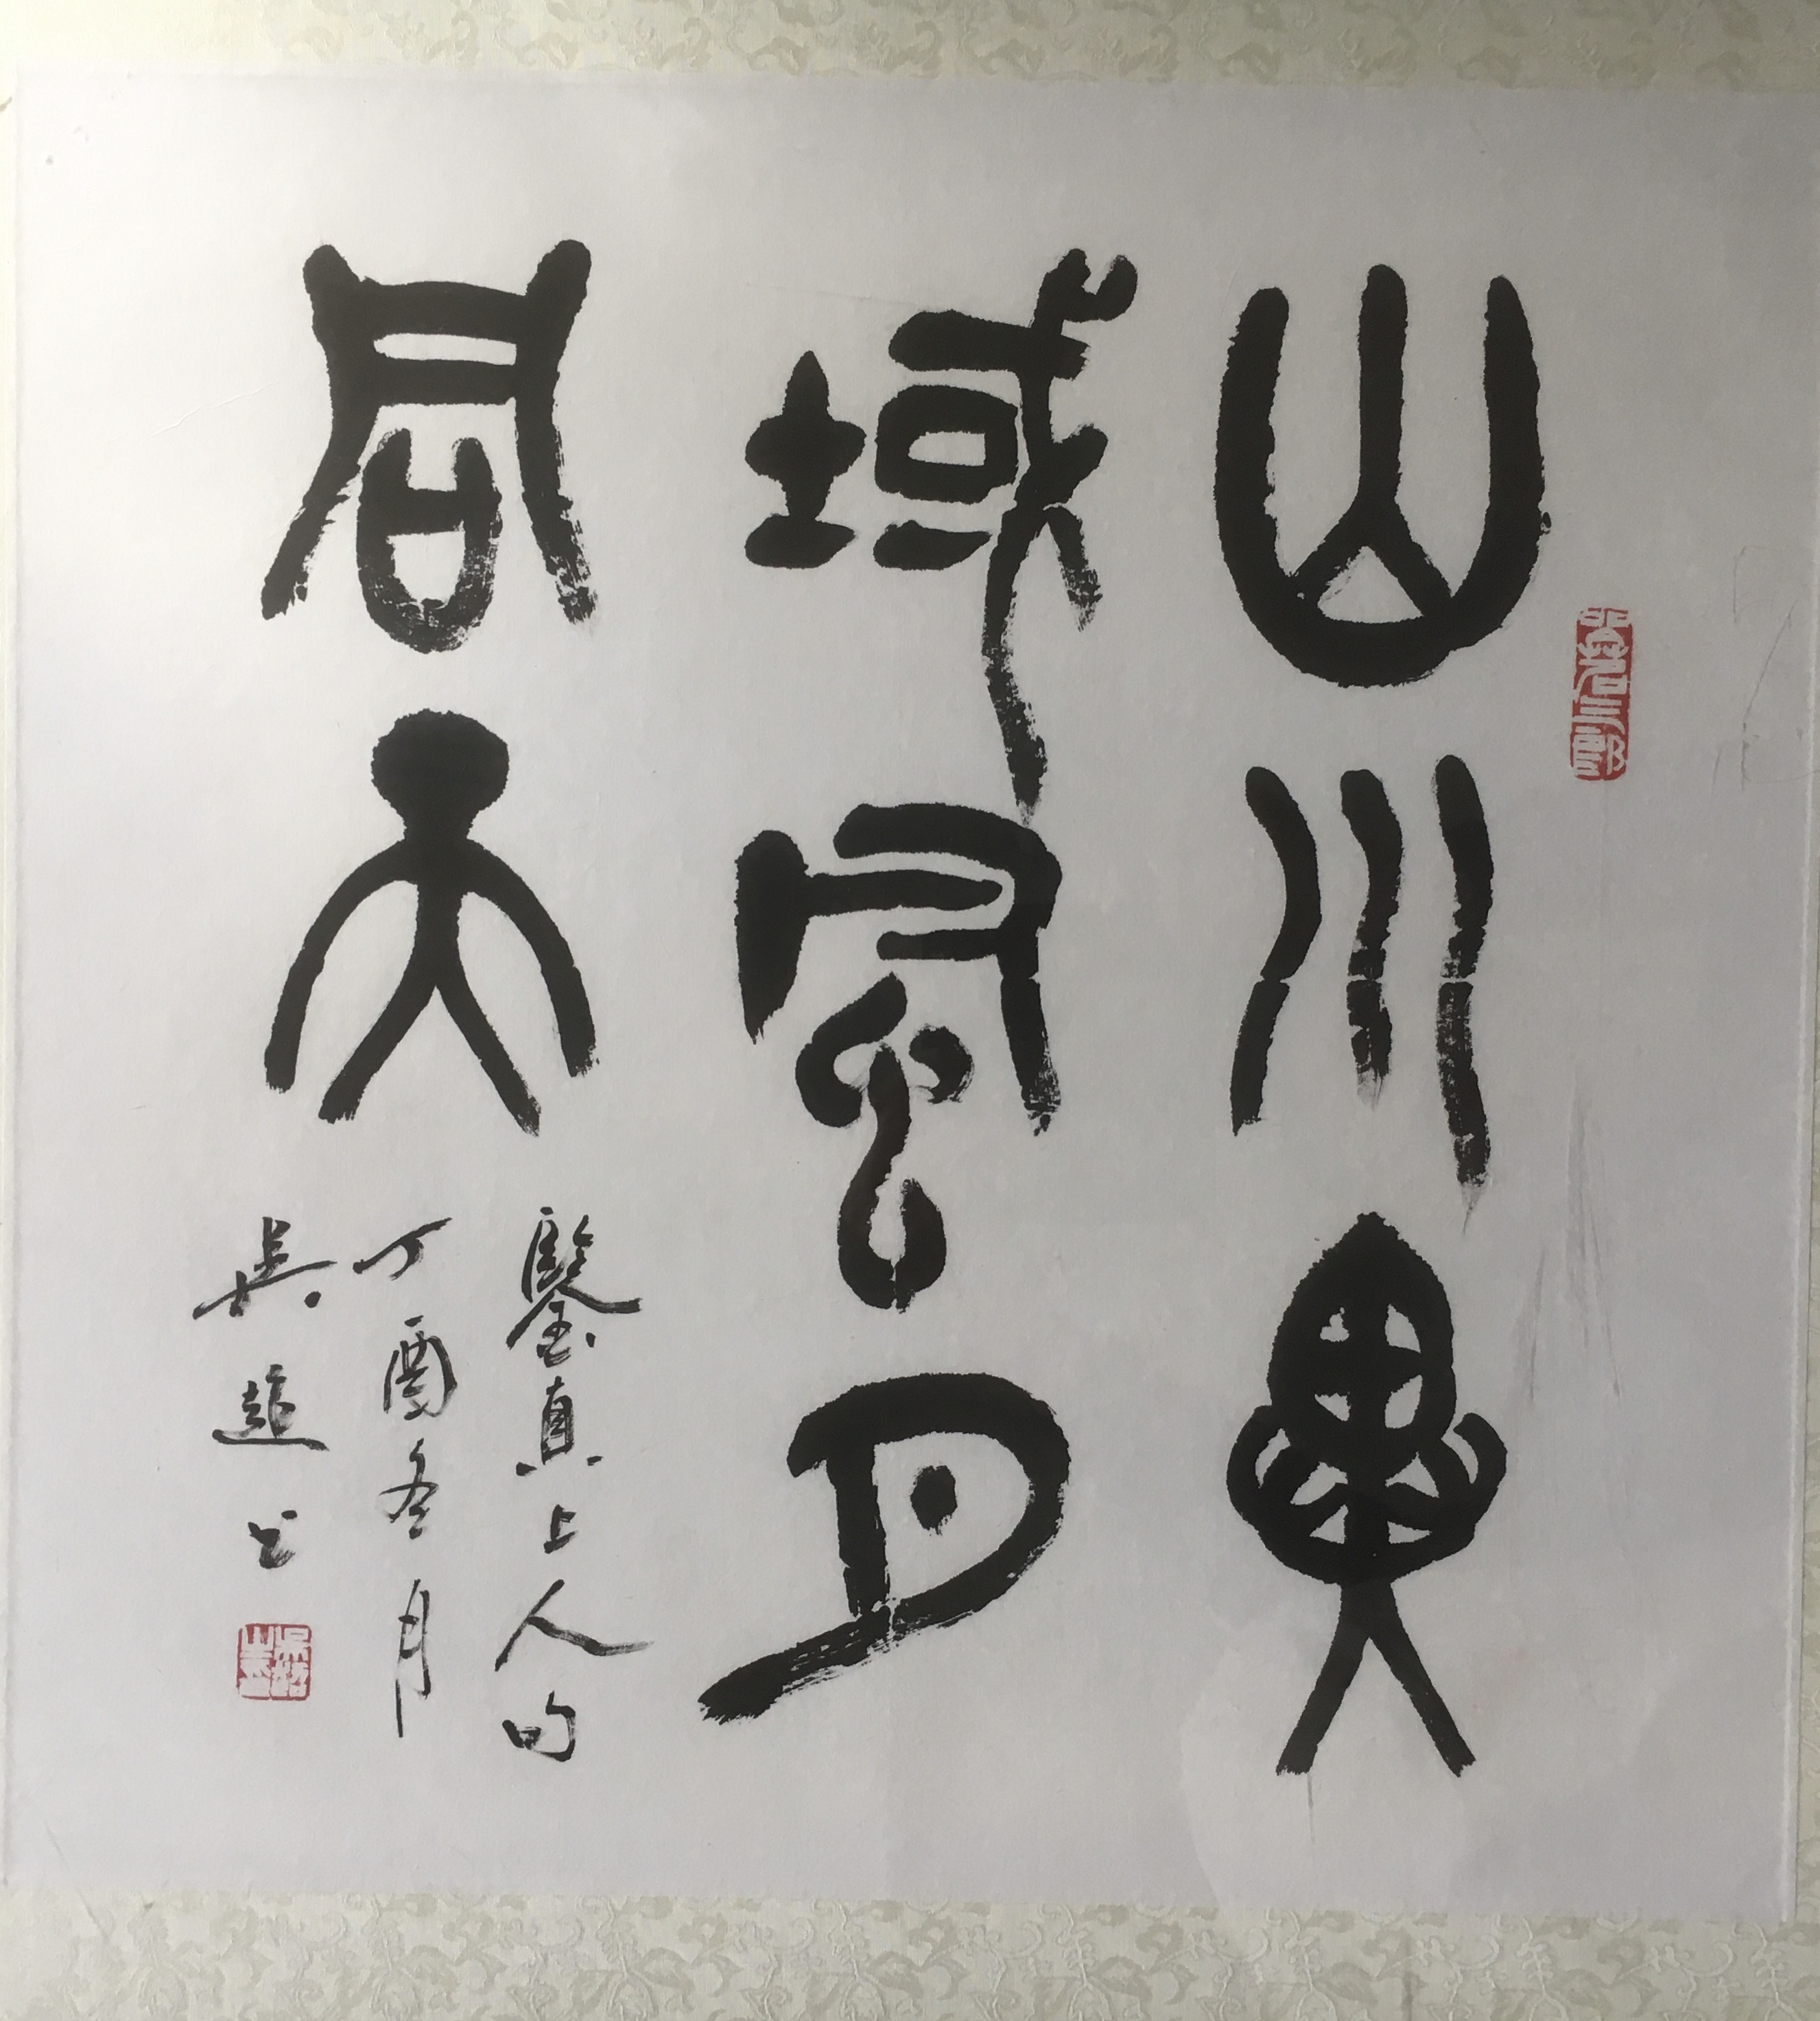 山川異
域風月
同天
鑒真上人句
丁酉冬月
吳超書